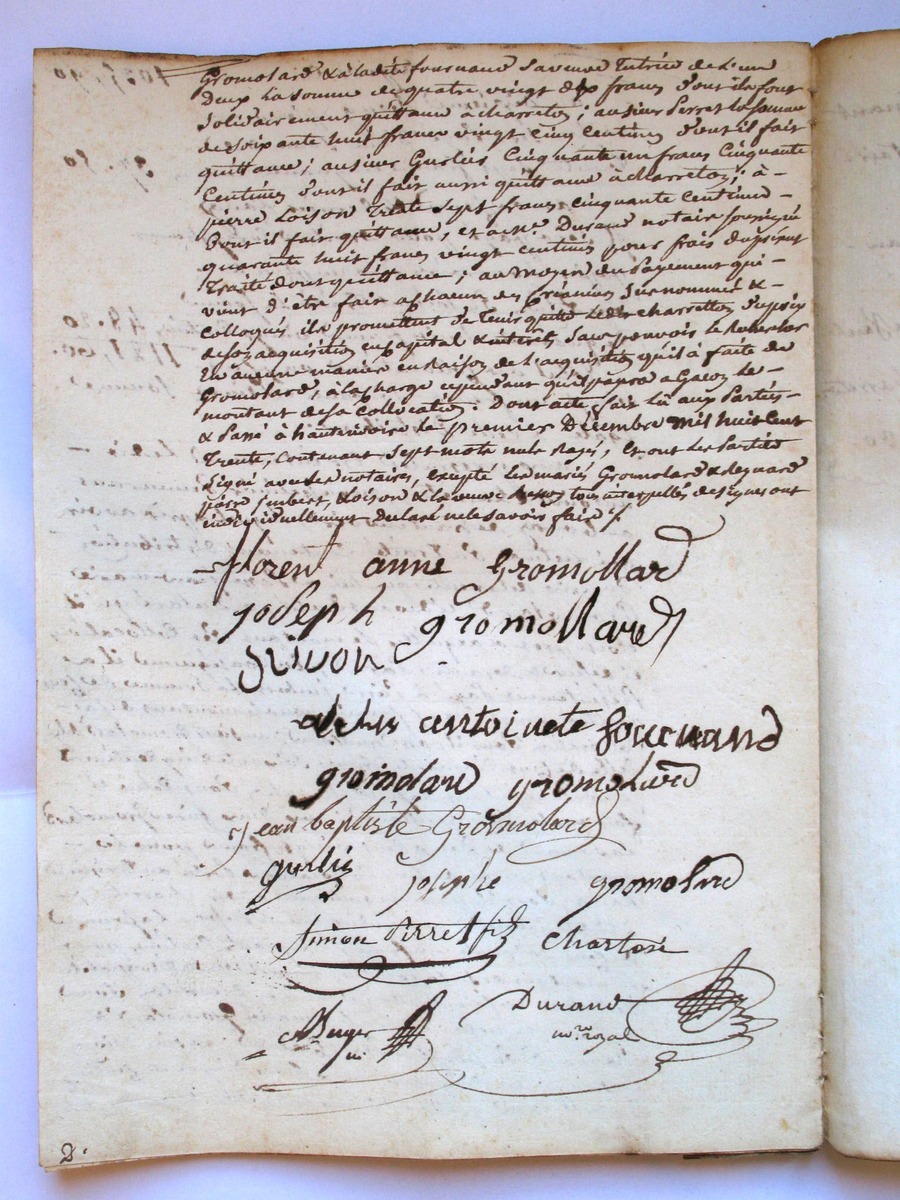 Gromolard & à ladite fournand sa veuve Tutrice de l'un
Deux la somme de quatre vingt dix francs dont ils font
solidairement quittance à charreton; au sieur Perret la somme
de soixante huit francs vingt cinq centimes dont il fait
quittance; au sieur Cinquante un francs Cinquante
Centimes dont il fait aussi quittance à charreton; à -
pierre Loison Trente Sept francs cinquante centimes
Dont il fait quittance, et à Me. Durand notaire soussigné
quarante huit francs vingt centimes pour frais du présent
Traité dont quittance; au moyen du Payement qui -
vient d'être fait a chacun des créanciers sus nommés & -
Colloqués ils promettent de tenir quitte ledit charreton du prix
de son acquisition en capital & intérêts sans pouvoir le rechercher
En aucune manière en raison de l'acquisition qu'il à faite de
Gromolard, à la charge cependant le -
montant de sa Collocation. Dont acte, fait lu aux Parties -
& Passé à hauterivoire le premier Décembre mil huit cent
Trente, contenant Sept mots nuls rayés, et ont les Parties
signé avec les notaires, excepté les mariés Gromolard &
père imbert, Loison & la veuve tous interpellés de signer ont
individuellement déclaré ne le savoir faire ./.
florent anne Gromollard
joseph gromollard
antoinete fournand
gromolard gromolard
jean baptiste Gromolard
josephe gromolard
Simon Perret fils
Durand
no.re royal
2.